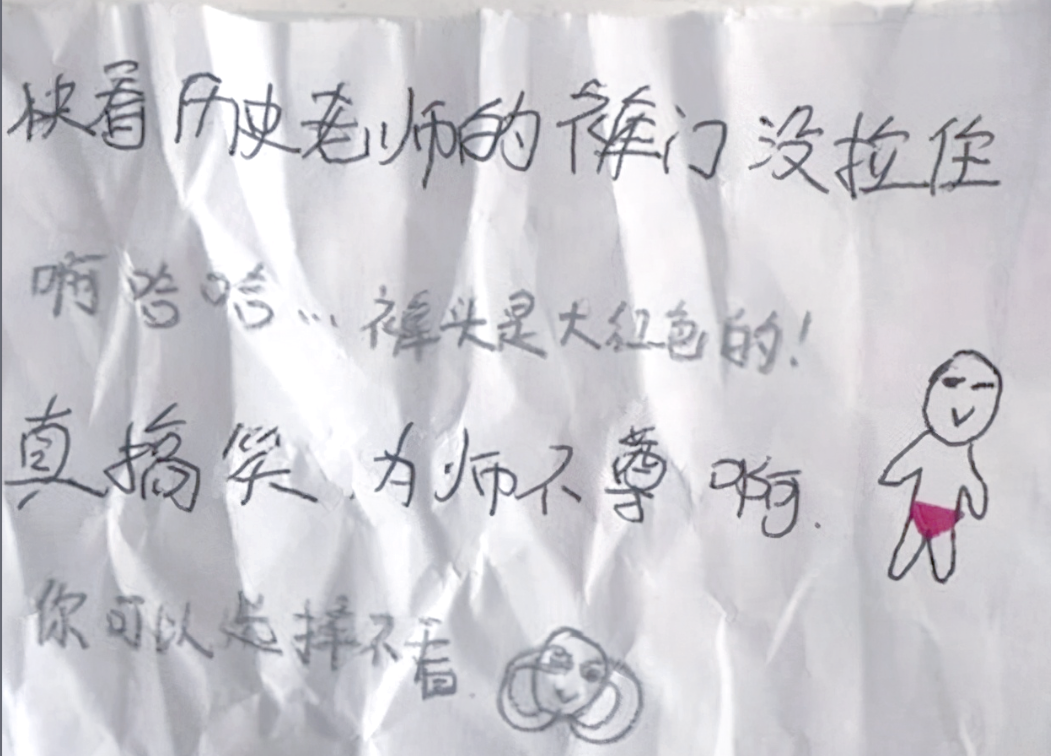 快看历史老师的裤门没拉住
啊哈哈...裤头是大红色的!
真搞笑.为师不尊啊.
你可以选择不看.